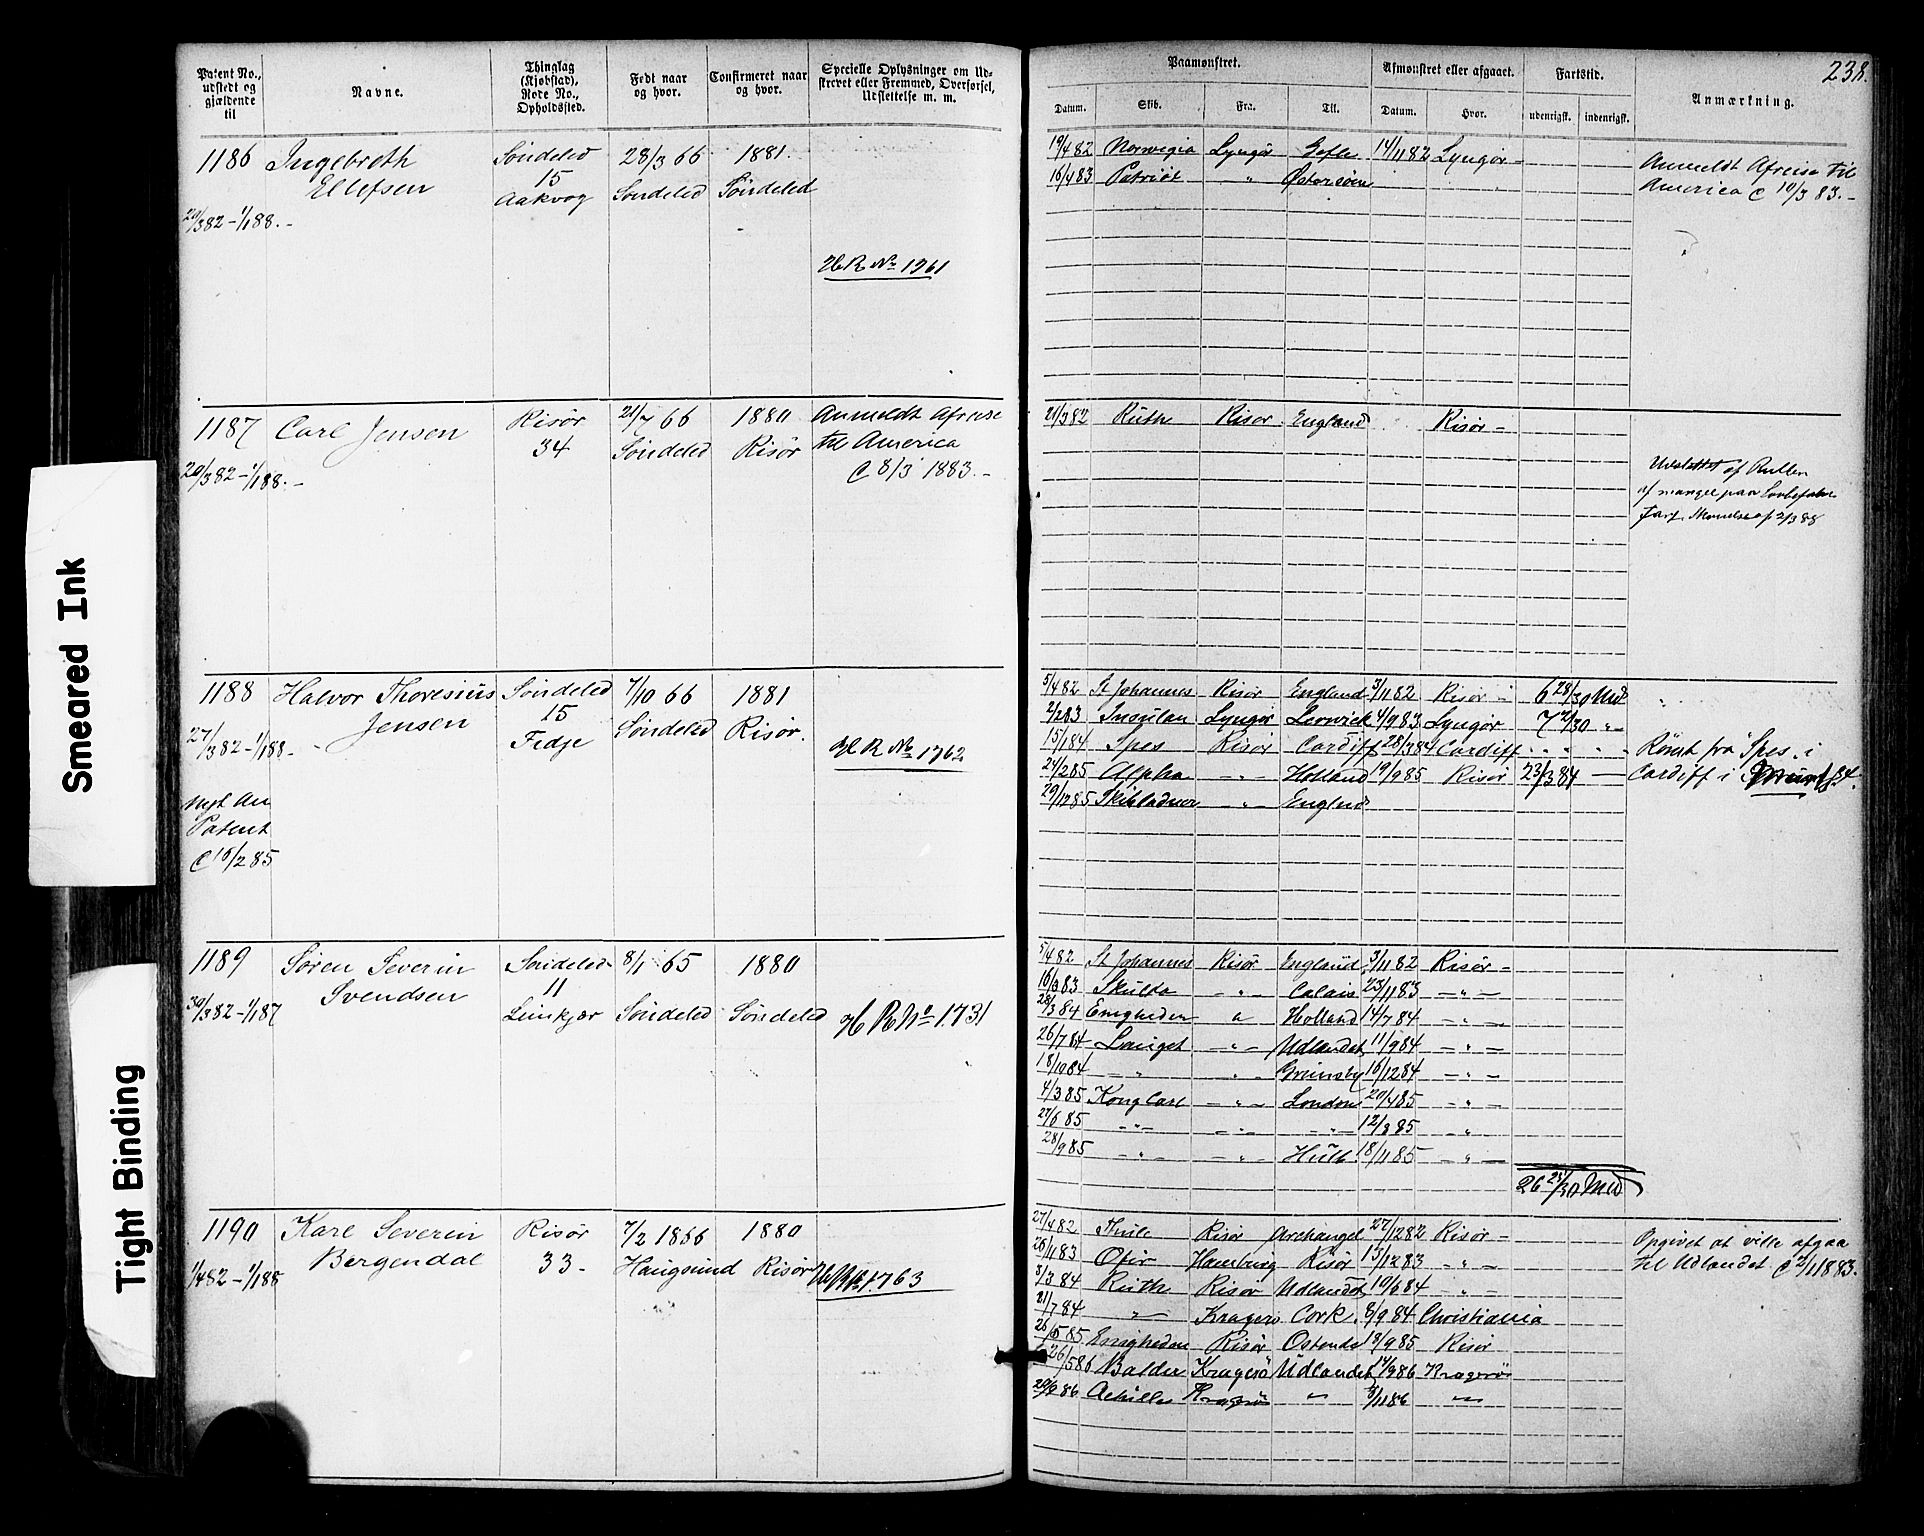 Smeared Ink
Tight Binding
238.
Patent No., udstedt og gjældende til
Navne.
Thinglag (Kjøbstad), Rode No., Opholdssted.
Født naar og hvor.
Confirmeret naar og hvor.
Specielle Oplysninger om Udskrevet eller Fremmed, Overførsel, Udslettelse m. m.
Paamønstret.
Afmønstret eller afgaaet.
Fartstid.
Anmærkning.
Datum. Skib. Fra. Til. Datum. Hvor. udenrigsk. indenrigsk.
1186 Ingebreth Søndeled 28/3 66 1881.
Ellefsen 15 Søndeled Søndeled
Aakvog
20/3 82 - 1/1 88. -
H R No 1761
19/4 82 Norwegia Lyngör Gefle 14/11 82 Lyngör -
16/4 83 Patriot - " - Østersøen
Anmeldt Afreise til
America C 10/3 83. -
1187 Carl Jensen Risör 21/7 66 1880 Anmeldt Afreise
34 Söndeled Risör til America
C 8/3 1883. -
20/3 82 - 1/1 88. -
21/3 82 Ruth Risör England Risör -
Udslettet af Rullen
af mangel paa
2/3 88
1188 Halvor Thoresius Søndeled 7/10 66 1881
Jensen 15 Søndeled Risör.
Fedje
27/3 82 - 1/1 88. -
H R No 1762
nyt
Patent
C 16/2 85
5/4 82 St Johannes Risör England 3/11 82 Risör - 6 28/30 Md
2/2 83 Insulan Lyngör Lerwick 4/9 83 Lyngör 7 2/30 "
15/1 84 Spes Risör Cardiff 28/3 84 Cardiff
24/2 85 Alpha - " - Holland 19/9 85 Risör 23/3 84 -
29/12 85 Skibladner - " - England
Römt fra "Spes" i
Cardiff i
1189 Søren Severin Søndeled 8/1 65 1880
Svendsen 11
30/3 82 - 1/1 87 Leinkjær Søndeled Søndeled H R No 1731
5/4 82 St Johannes Risör England 3/11 82 Risör -
16/3 83 Skulda - " - Calais 23/11 83 - " -
28/3 84 Enigheden " Holland 14/7 84 - " -
26/7 84 - " - Udlandet 11/9 84 - " -
18/10 84 - " - " Grimsby 16/12 84 - " -
4/3 85 Kong Carl - " - London 20/4 85 - " -
27/6 85 - " - - " - - " - 12/8 85 - " -
28/9 85 - " - - " - Hull 18/11 85 - " -
26 25/30 Md
1190 Karl Severin Risör 7/2 1866 1880
Bergendal 33 - Haugsund Risör
1/4 82 - 1/1 88 H R No 1763
27/4 82 Thule Risör Archangel 27/12 82 Risör -
26/11 83 Ofir Hamburg Risör 15/12 83 - " -
3/3 84 Ruth Risör Udlandet 10/6 84 - " -
21/7 84 - " - Kragerö Cork 8/9 84 Christiania
26/5 85 Enigheden Risör Ostende 18/9 85 Risör
26/5 86 Balder Kragerö Udlandet 14/9 86 Kragerö
20/9 86 Achilles Kragerö " 3/11 86 "
Opgivet at ville afgaa
til Udlandet C 2/11 83.